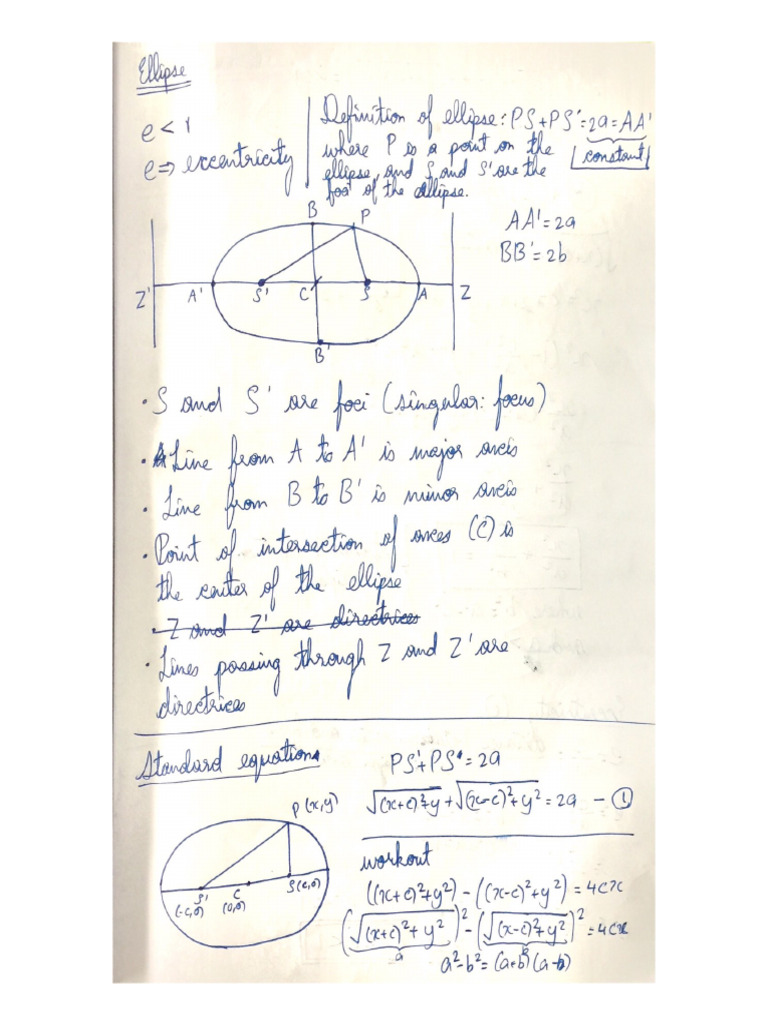 Ellipse
e < 1
e ⇒ eccentricity
Definition of ellipse: PS + PS' = 2a = AA'
where P is a point on the
constant
ellipse, and S and S' are the
foci of the ellipse.
AA' = 2a
BB' = 2b
B
P
Z'
A'
S'
C
S
A
Z
B'
• S and S' are foci (singular: focus)
• Line from A to A' is major axis
• Line from B to B' is minor axis
• Point of intersection of axes (C) is
the center of the ellipse
• Z and Z' are directrices
• Lines passing through Z and Z' are
directrices
Standard equations
PS' + PS = 2a
√(x+c)²+y + √(x-c)²+y² = 2a - ①
P(x,y)
S'
(-c,0)
C
(0,0)
S(c,0)
workout
((x+c)²+y²) - ((x-c)²+y²) = 4cx
(√(x+c)²+y²)² - (√(x-c)²+y²)² = 4cx
a
b
a²-b² = (a+b)(a-b)